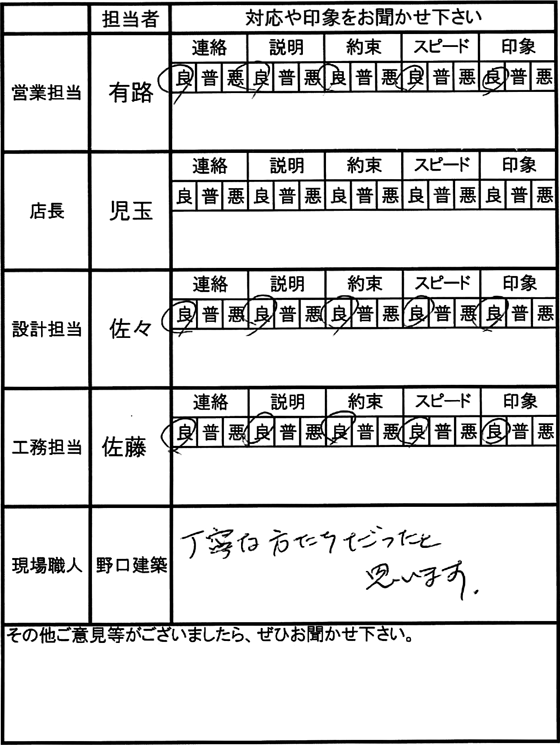 担当者 対応や印象をお聞かせ下さい
連絡 説明 約束 スピード 印象
営業担当 有路 良 普 悪 良 普 悪 良 普 悪 良 普 悪 良 普 悪
連絡 説明 約束 スピード 印象
店長 児玉 良 普 悪 良 普 悪 良 普 悪 良 普 悪 良 普 悪
連絡 説明 約束 スピード 印象
設計担当 佐々 良 普 悪 良 普 悪 良 普 悪 良 普 悪 良 普 悪
連絡 説明 約束 スピード 印象
工務担当 佐藤 良 普 悪 良 普 悪 良 普 悪 良 普 悪 良 普 悪
現場職人 野口建築 丁寧な方たちだったと
思います.
その他ご意見等がございましたら、ぜひお聞かせ下さい。